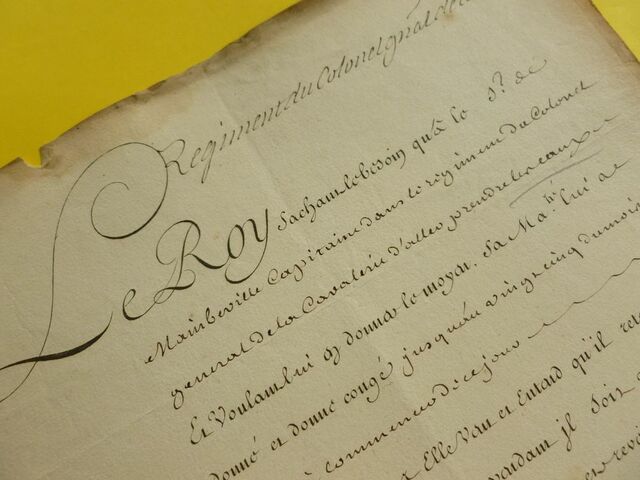 Regiment du Colonel gñal de
Le Roy Sachant le besoin qu'a le S.r de
Mainbeville Capitaine dans le regiment du Colonel
general de la Cavalerie d'aller prendre les eaux
Et Voulant lui en donner le moyen, Sa Ma.té lui a
donné et donne congé jusqu'au vingt cinq du mois
commencer de ce jour
Elle Veut et Entend qu'il
pendant jl Soit